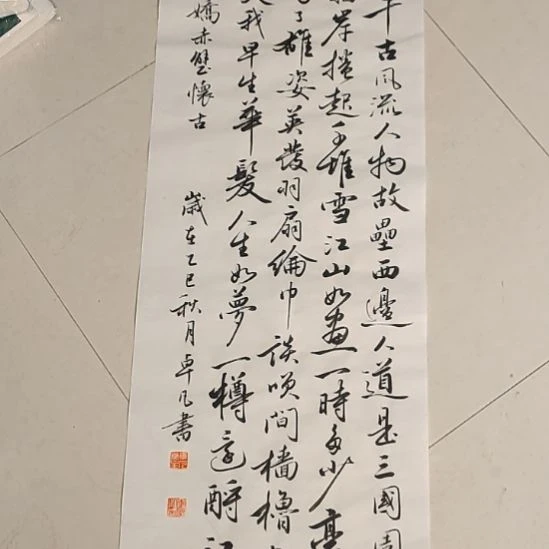 千古风流人物故壘西邊人道是三國周
岸捲起千堆雪江山如畫一時多少豪
了雄姿英發羽扇綸巾談笑間檣櫓
我早生華髮人生如夢一樽還酹江
嬌赤壁懷古
歲在乙巳秋月卓凡書